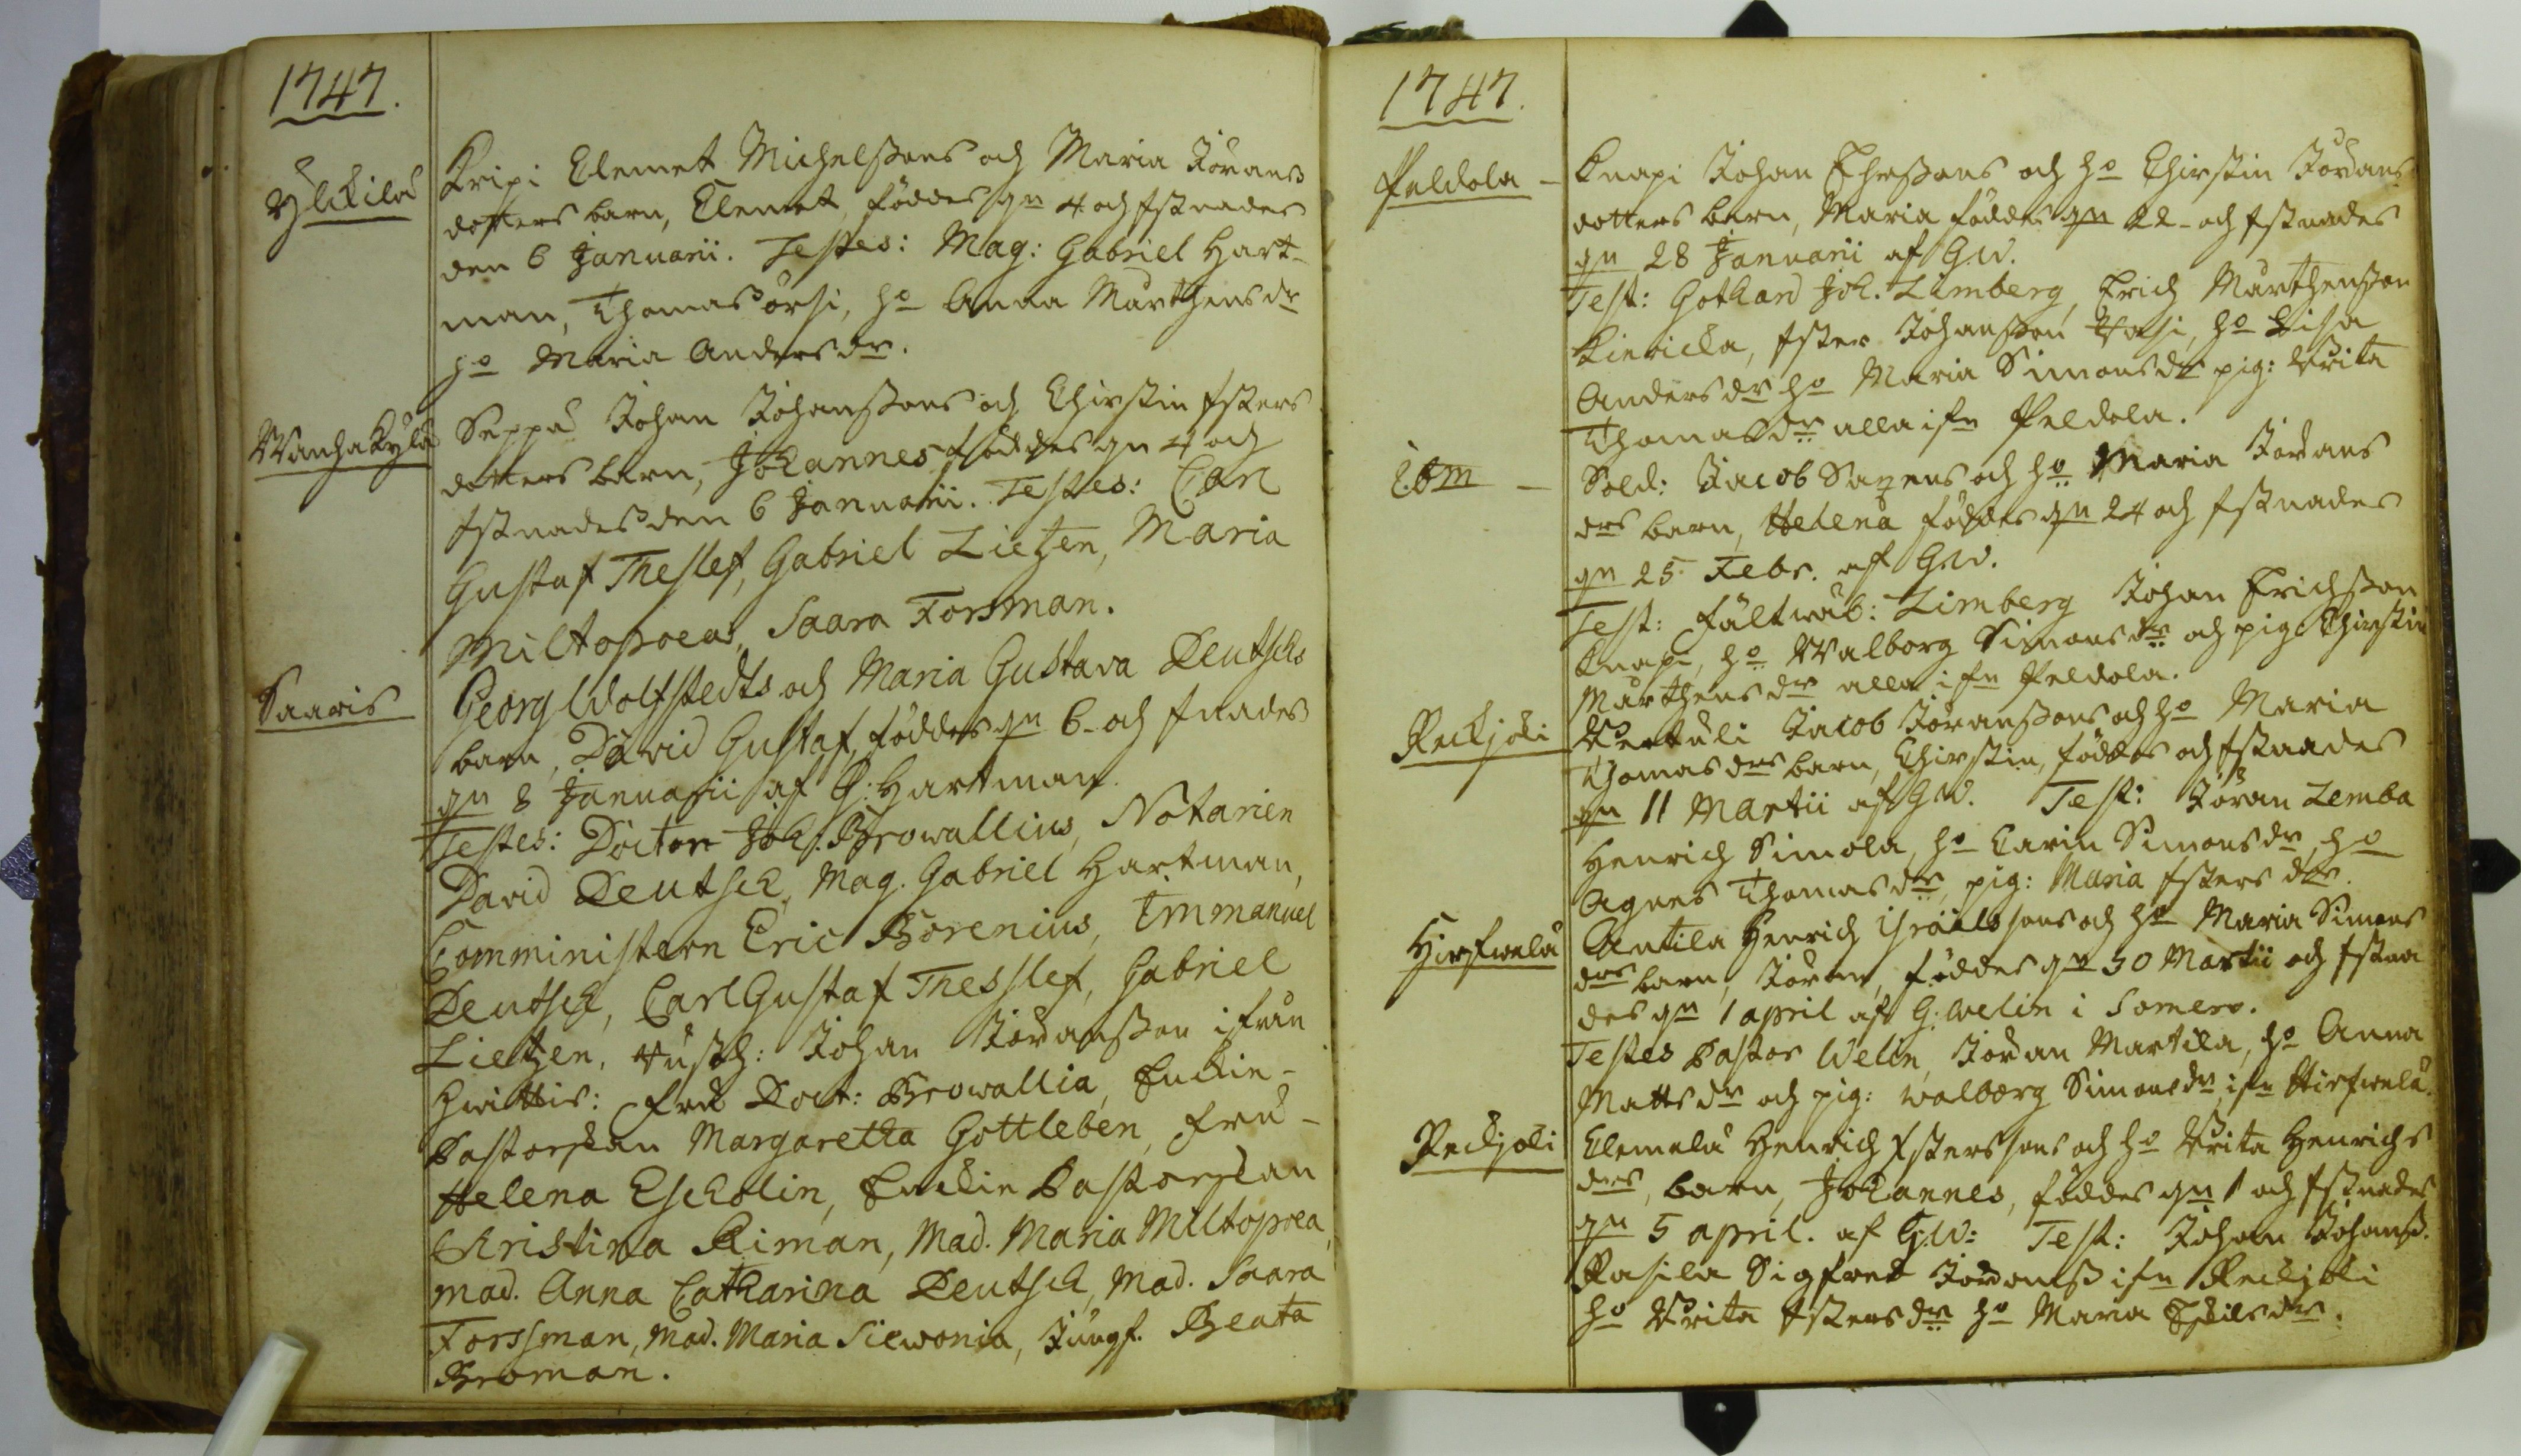 1747.
Ylikilä
Kripi Clemet Michelssons och Maria Jörans
dotters barn, Clemet, föddes dn 4 och Chstnades
den 6 Januarii. Testes: Mag: Gabriel Hart-
man, Thomas örsi, ho Anna Mårthensdr
ho Maria Andersdr.
Wanhakylä
Seppä Johan Johanssons och Chirstin
dotters barn, Johannes föddes dn 4 och
Chstnades den 6 Januarii. Testes: Carl
Gustaf Theslef, Gabriel Lietzen, Maria
Miltopoeas, Saara Forsman.
Saaris
Georg Wolfstedts och Maria Gustava Deutschs
barn, David Gustaf, föddes dn 6 och
dn 8 Januarii af G: Hartman.
Testes: Doctor Joh. Browallius, Notarien
David Deutsch, Mag. Gabriel Hartman,
Comministern Eric Borenius, Emmanuel
Deutsch, Carl Gustaf Thesslef, Gabriel
Lietzen, Johan Jöransson ifrån
Hwittis: Fru Doct: Browallia, Enkie-
Pastorskan Margaretha Gottleben, Fru
Helena Escholin, Enkie Pastorskan
Christina Kiman, Mad. Maria Miltopoea,
Mad. Anna Catharina Deutsch, Mad. Saara
Forssman, Mad. Maria Siewonia, Jungf. Beata
Broman.
1747.
Peldola
Knapi Johan och ho Chirstin Jörans
dotters barn, Maria föddes dn 22 och Chstnades
dn 28 Januarii af G.W.
Test: Gothard Joh. Limberg, Erich Mårthensson
Johansson ho Lisa
Andersdr ho Maria Simonsdr pig: Brita
Thomasdr alla ifn Peldola.
Ibm
Sold: Jacob Saxens och ho Maria Jörans
drs barn, Helena föddes dn 24 och Chstnades
dn 25 Febr. af G.W.
Test: fältwäb: Limberg Johan Erichsson
Knapi, ho Walborg Simonsdr och pig Chirstin
Mårthensdr alla ifn Peldola.
Reckjoki
Jacob Jöranssons och ho Maria
Thomasdrs barn, Chirstin, föddes och Chstnades
dn 11 Martii af G.W. Test: Jöran Lemba
Henrich Simola, ho Carin Simonsdr, ho
Agnes Thomasdr, pig: Maria
Hirswelä
Antila Henrich Israelssons och ho Maria Simons
drs barn, Jöran, föddes dn 30 Martii och Chstna
des dn 1 april af G. Welin i Somero.
Testes Pastor Welin, Jöran Martila, ho Anna
Mattsdr och pig: Walborg Simonsdr ifn Hirswelä.
Reckjoki
Clemelä Henrich och ho Brita Henrichs
drs, barn, Johannes, föddes dn 1 och Chstnades
dn 5 april. af G.W: Test: Johan Johanss.
Rasila Sigfred Jöranss ifn Reckjoki
ho Brita ho Maria